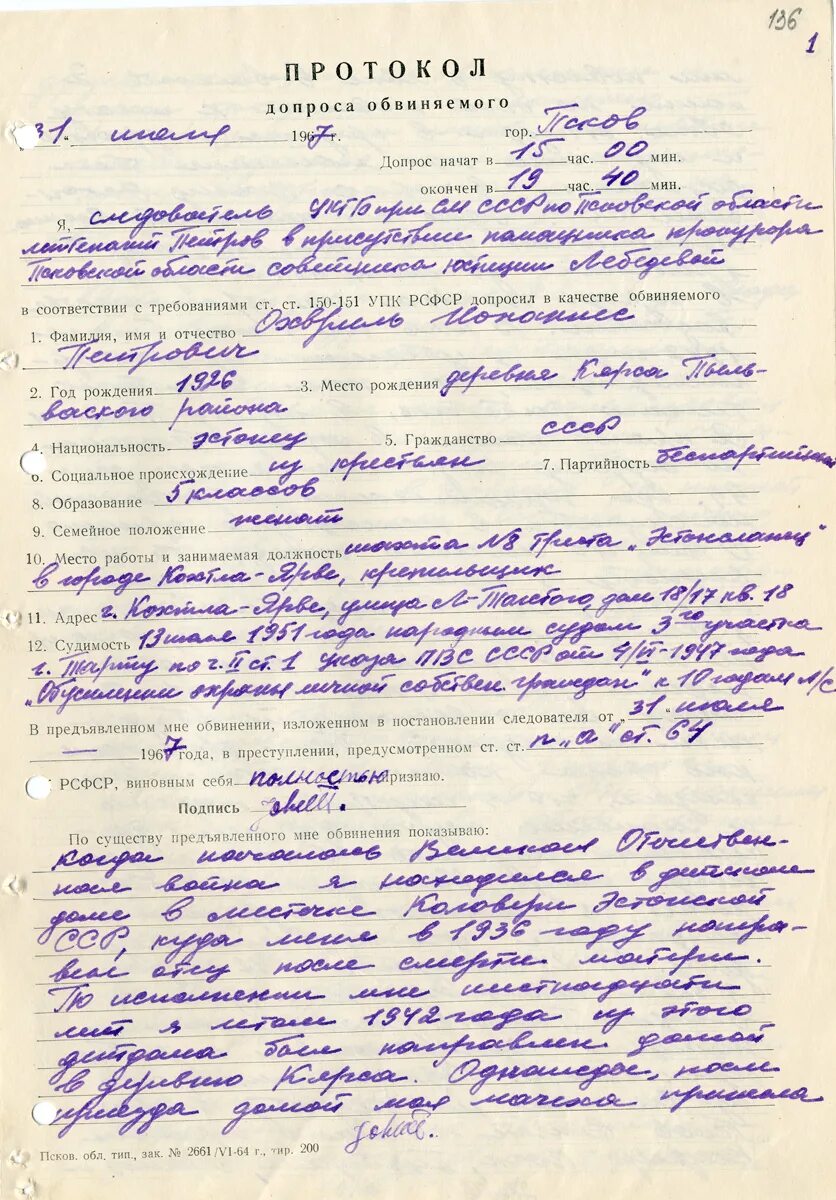 136
1
ПРОТОКОЛ
допроса обвиняемого
31 " июля 1967 г. гор. Псков
Допрос начат в 15 час. 00 мин.
окончен в 19 час. 40 мин.
Я, следователь УКГБ при СМ СССР по Псковской области
лейтенант Петров в присутствии помощника прокурора
Псковской области советника юстиции Лебедевой
в соответствии с требованиями ст. ст. 150-151 УПК РСФСР допросил в качестве обвиняемого
1. Фамилия, имя и отчество Охвриль Иоханнес
Петрович
2. Год рождения 1926 3. Место рождения деревня Кярса Пыль-
ваского района
4. Национальность эстонец 5. Гражданство СССР
6. Социальное происхождение из крестьян 7. Партийность беспартийный
8. Образование 5 классов
9. Семейное положение женат
10. Место работы и занимаемая должность шахта №8 треста „Эстонсланец"
в городе Кохтла-Ярве, крепильщик
11. Адрес г. Кохтла-Ярве, улица Л-Толстого, дом 18/17 кв. 18
12. Судимость 13 июля 1951 года народным судом 3го участка
г. Тарту по ч. II ст. 1 Указа ПВС СССР от 4/VI-1947 года
„Об усилении охраны личной собствен. граждан" к 10 годам л/с
В предъявленном мне обвинении, изложенном в постановлении следователя от „31" июля
— 1967 года, в преступлении, предусмотренном ст. ст. п „а" ст. 64
РСФСР, виновным себя полностью признаю.
Подпись
По существу предъявленного мне обвинения показываю:
Когда началась Великая Отечествен-
ная война я находился в детском
доме в местечке Каговери Эстонской
ССР, куда меня в 1936 году напра-
вил отец после смерти матери.
По исполнении мне шестнадцати
лет я летом 1942 года из этого
детдома был направлен домой
в деревню Кярса. Однажды, после
приезда домой моя мачеха принесла
Псков. обл. тип., зак. № 2661/VI-64 г., тир. 200